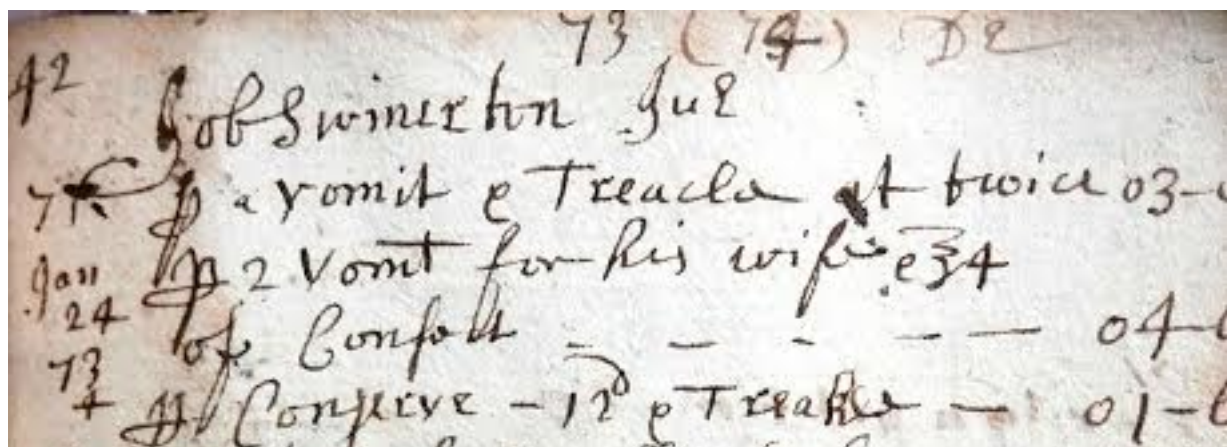 73 (74) De
42
Job Swinerton Jue
71 p a vomit e Treacle at twice 03-
Jan 24 p 2 Vomt for his wife e ℥4
of Confect - - - - - 04-6
73/4 p Conserve - 12d e Treakle - 01-6